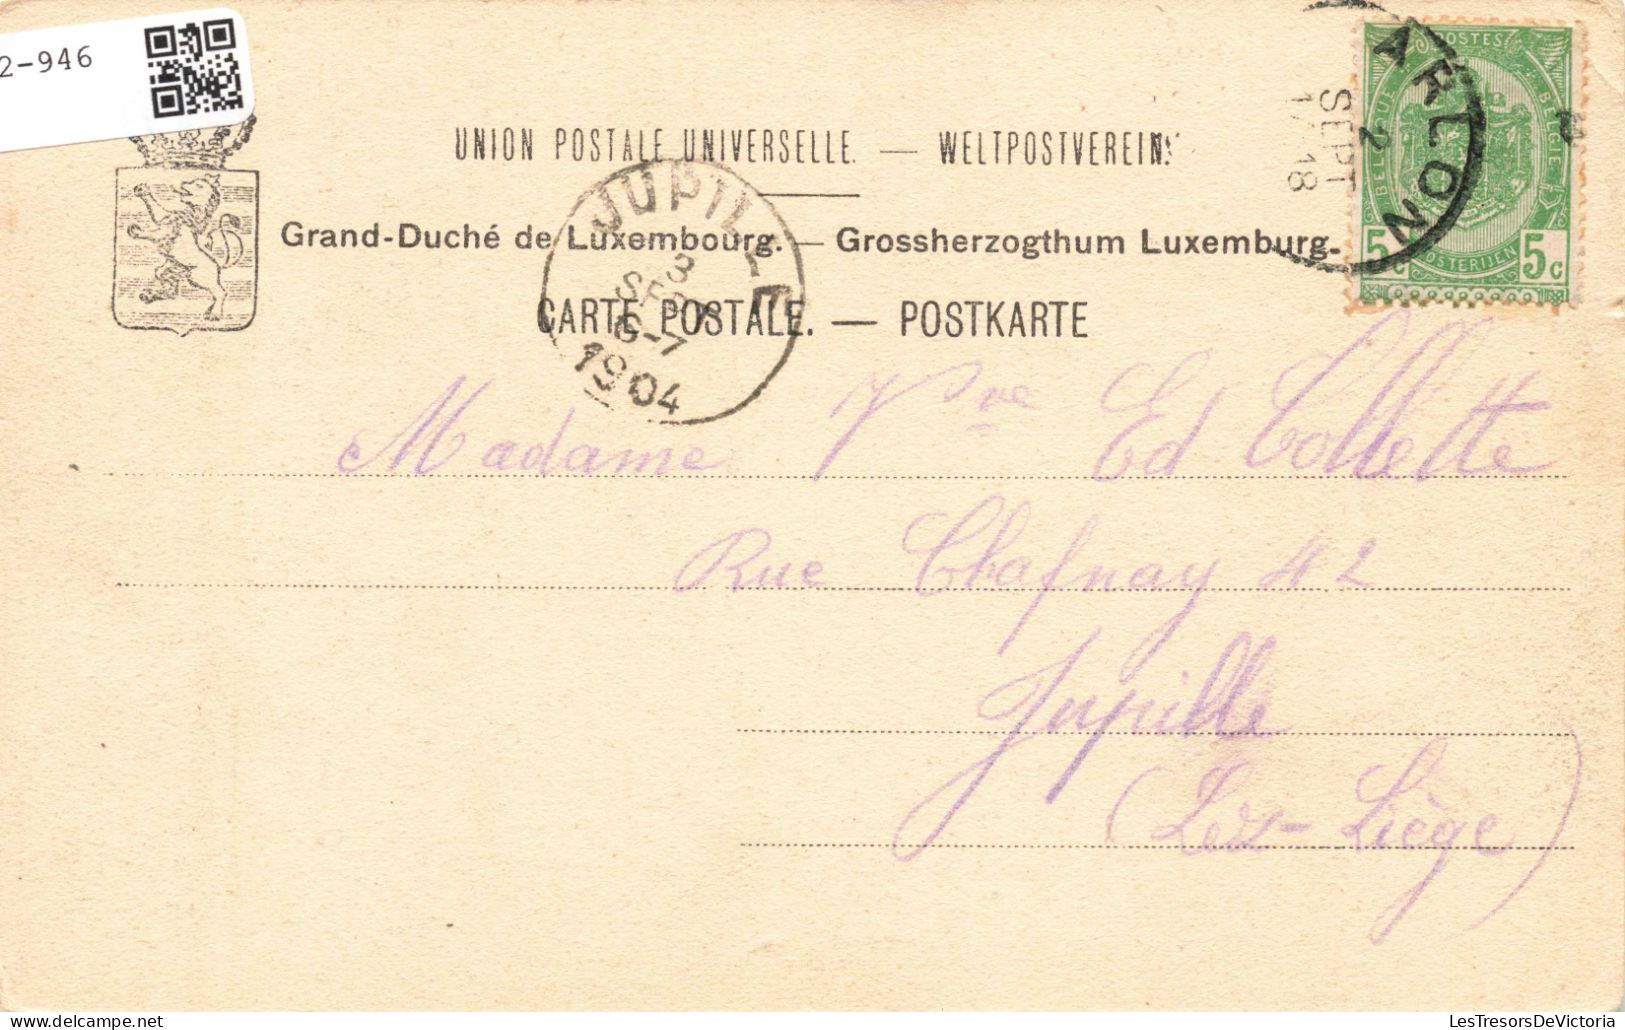 2-946
UNION POSTALE UNIVERSELLE. — WELTPOSTVEREIN.
Grand-Duché de Luxembourg. — Grossherzogthum Luxemburg.
CARTE POSTALE. — POSTKARTE
JUPILLE
3
SEPT
6-7
1904
ARLON
2
SEPT
POSTES
BELGIQUE
BELGIË
POSTERIJEN
5c 5c
Madame Vve Ed Collette
Rue Chafnay 42
Jupille
(Lez-Liège)
LesTresorsDeVictoria.com